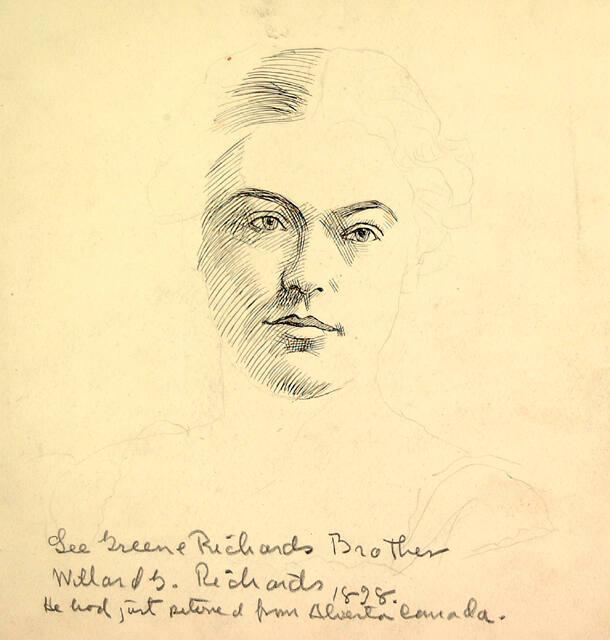 Lee Greene Richards Brother
Willard G. Richards 1898.
He had just retured from Alverta Canada.